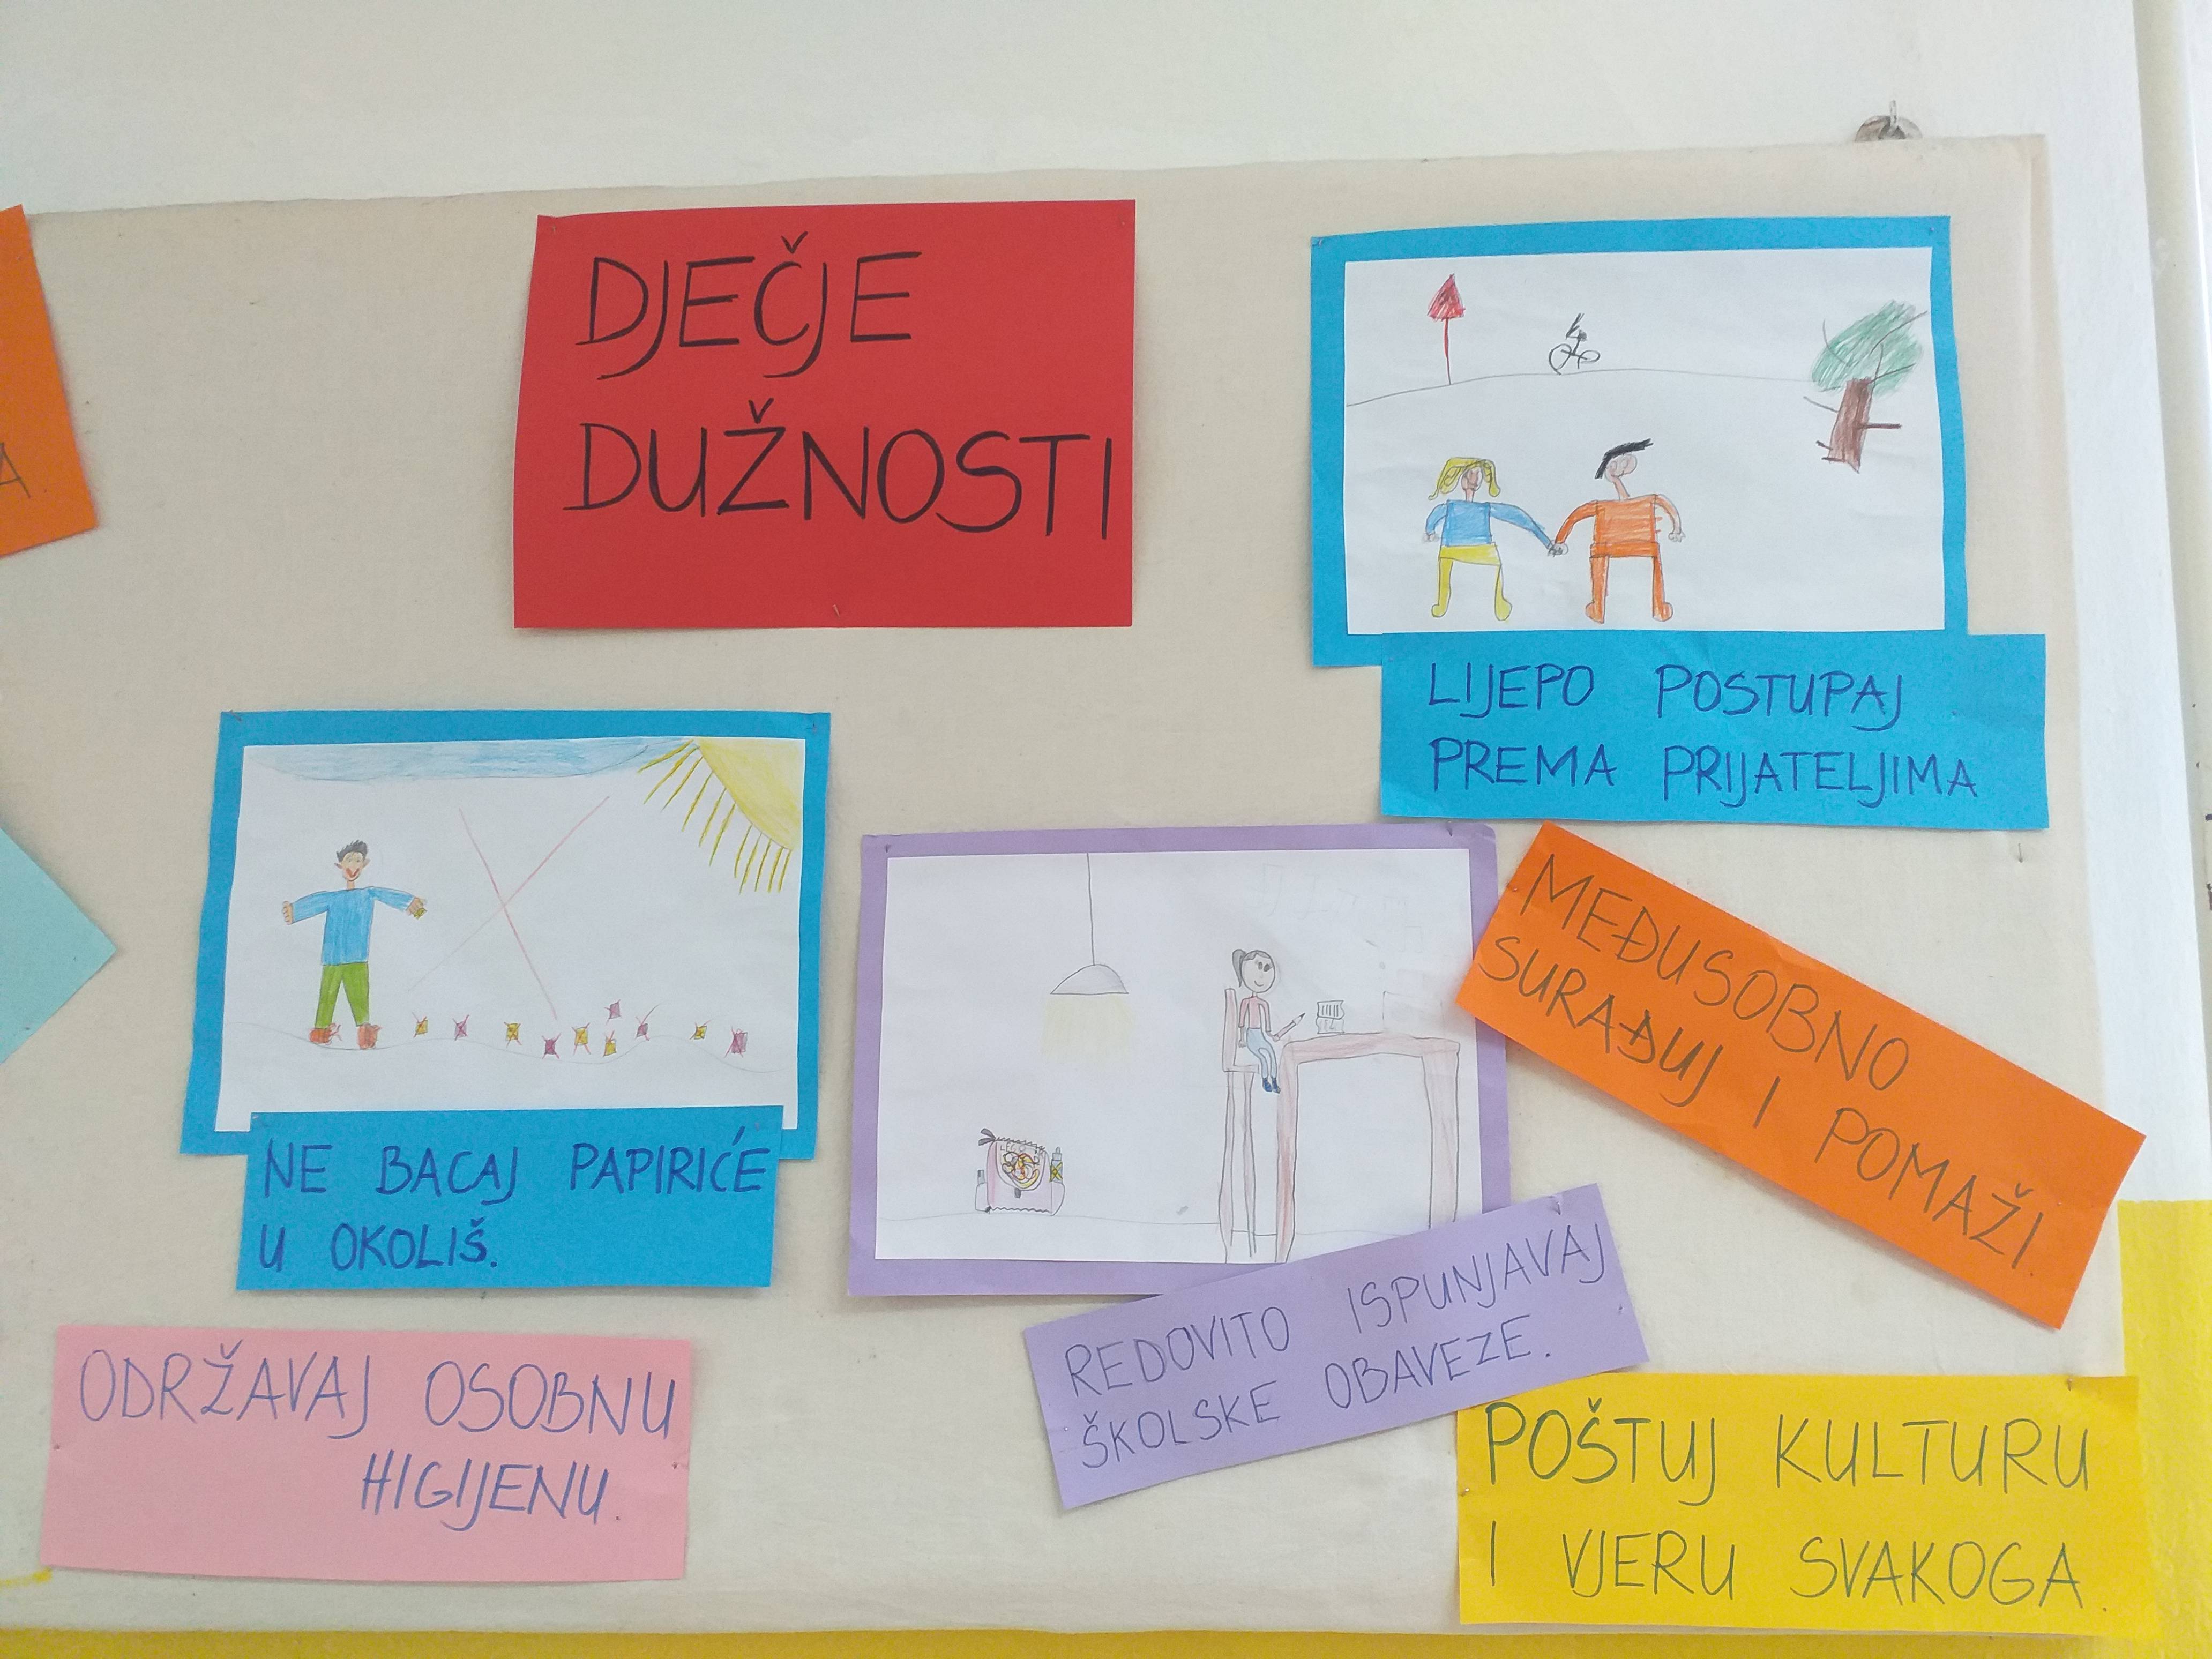 DJEČJE
DUŽNOSTI
LIJEPO POSTUPAJ
PREMA PRIJATELJIMA
NE BACAJ PAPIRIĆE
U OKOLIŠ.
MEĐUSOBNO
SURAĐUJ I POMAŽI.
REDOVITO ISPUNJAVAJ
ŠKOLSKE OBAVEZE.
ODRŽAVAJ OSOBNU
HIGIJENU.
POŠTUJ KULTURU
I VJERU SVAKOGA.
A